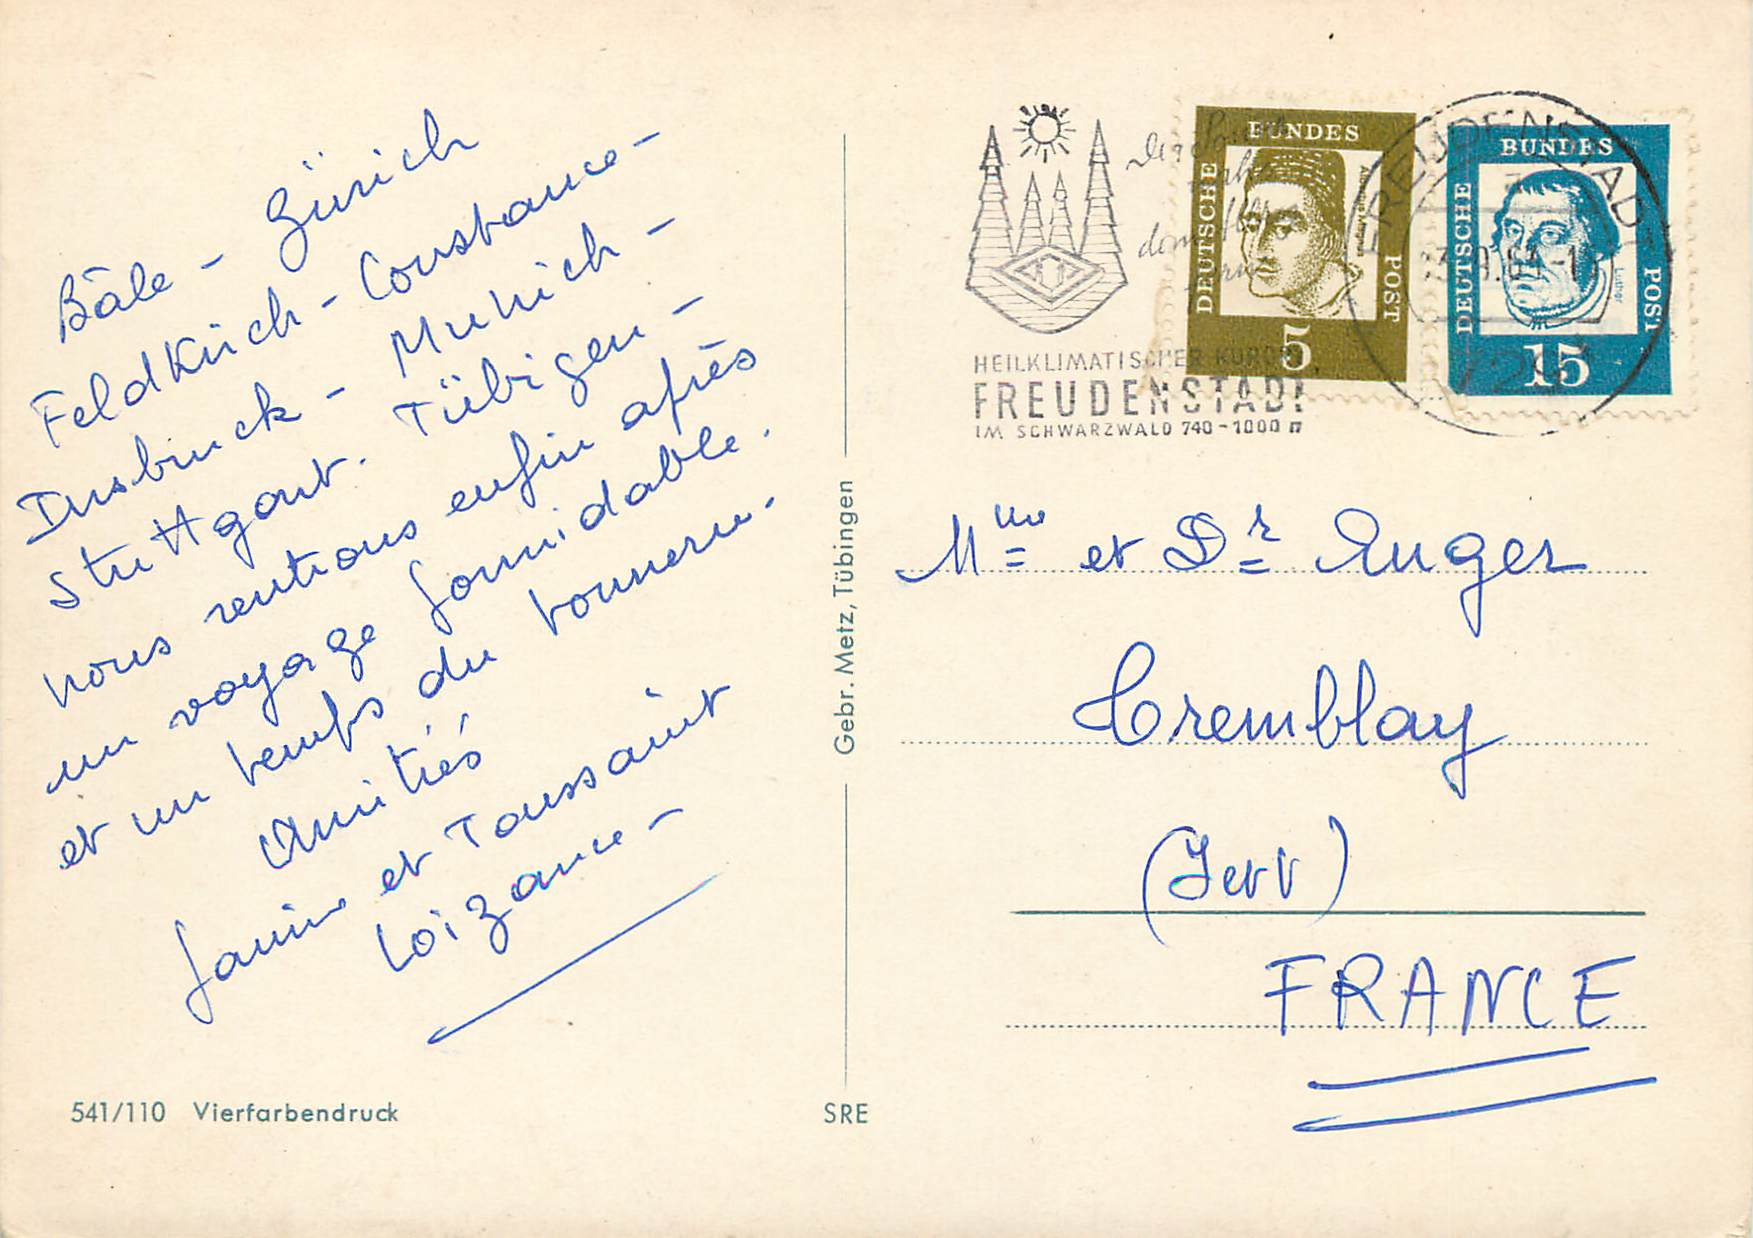 Bâle - Zürich
Feldkirch - Constance -
Insbruck - Munich -
Stuttgart. Tübigen -
nous rentrons enfin après
un voyage formidable.
et un temps du tonnerre.
Amitiés
Janine et Toussaint
Loizance -
541/110 Vierfarbendruck
Gebr. Metz, Tübingen
SRE
HEILKLIMATISCHER KURORT
FREUDENSTADT
IM SCHWARZWALD 740-1000 m
DEUTSCHE BUNDES POST
5
DEUTSCHE BUNDES POST
Luther
15
FREUDENSTADT
Mme et Dr Auger
Tremblay
(Isère)
FRANCE